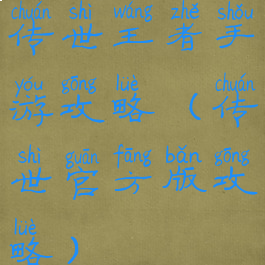 chuán shì wáng zhě shǒu
传世王者手
yóu gōng lüè chuán
游攻略（传
shì guān fāng bǎn gōng
世官方版攻
lüè
略）